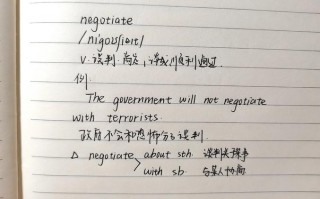 negotiate
/nigouʃieit/
v. 谈判, 商议; 译成顺利通过.
例.
The government will not negotiate
with terrorists.
政府不会和恐怖分子谈判.
△ negotiate about sth. 谈判某事
with sb. 与某人协商